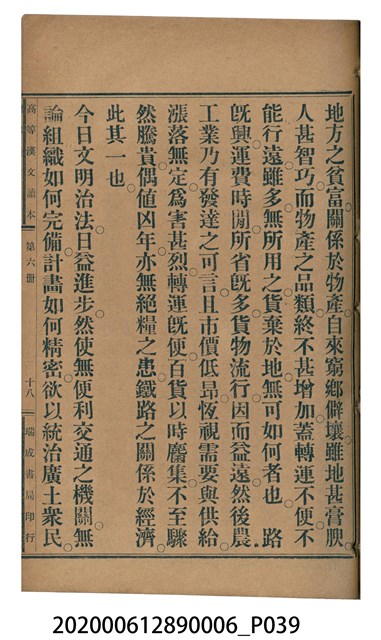 地方之貧富關係於物產自來窮鄉僻壤雖地甚膏腴
人甚智巧而物產之品類終不甚增加蓋轉運不便不
能行遠雖多無所用之貨棄於地無可如何者也　路
既興運費時間所省既多貨物流行因而益遠然後農
工業乃有發達之可言且市價低昂恆視需要與供給
漲落無定為害甚烈轉運既便百貨以時麕集不至驟
然騰貴偶值凶年亦無絕糧之患鐵路之關係於經濟
此其一也
今日文明治法日益進步然使無便利交通之機關無
論組織如何完備計畫如何精密欲以統治廣土衆民
高等漢文讀本　第六冊　十八　瑞成書局印行
202000612890006_P039